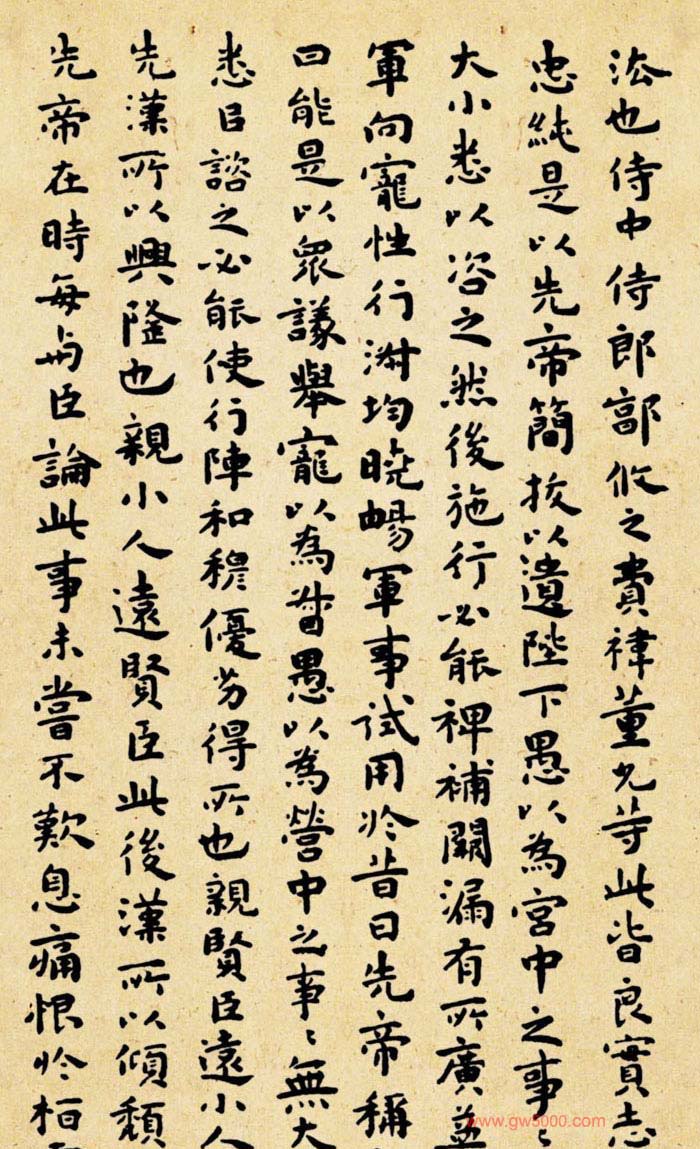 法也侍中侍郎郭攸之費禕董允等此皆良實志
忠純是以先帝簡拔以遺陛下愚以為宮中之事〻
大小悉以咨之然後施行必能裨補闕漏有所廣益
軍向寵性行淑均曉暢軍事試用於昔日先帝稱
曰能是以眾議舉寵以為督愚以為營中之事〻無大
悉㠯諮之必能使行陣和穆優劣得所也親賢臣遠小人
先漢所以興隆也親小人遠賢臣此後漢所以傾頹
先帝在時每與臣論此事未嘗不歎息痛恨於桓
www.gw5000.com